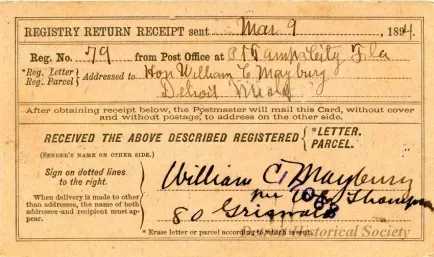 REGISTRY RETURN RECEIPT sent Mar 9, 1894.
Reg. No. 79 from Post Office at Pt Tampa City Fla
*Reg. Letter } Addressed to Hon William C Maybury
Reg. Parcel }
Detroit Mich
After obtaining receipt below, the Postmaster will mail this Card, without cover
and without postage, to address on the other side.
RECEIVED THE ABOVE DESCRIBED REGISTERED { *LETTER.
PARCEL.
(SENDER'S NAME ON OTHER SIDE.)
Sign on dotted lines
to the right.
William C Maybury
When delivery is made to other
than addressee, the name of both
addressee and recipient must ap-
pear.
per Thompson
80 Griswold
* Erase letter or parcel according to which is sent.
Detroit Historical Society